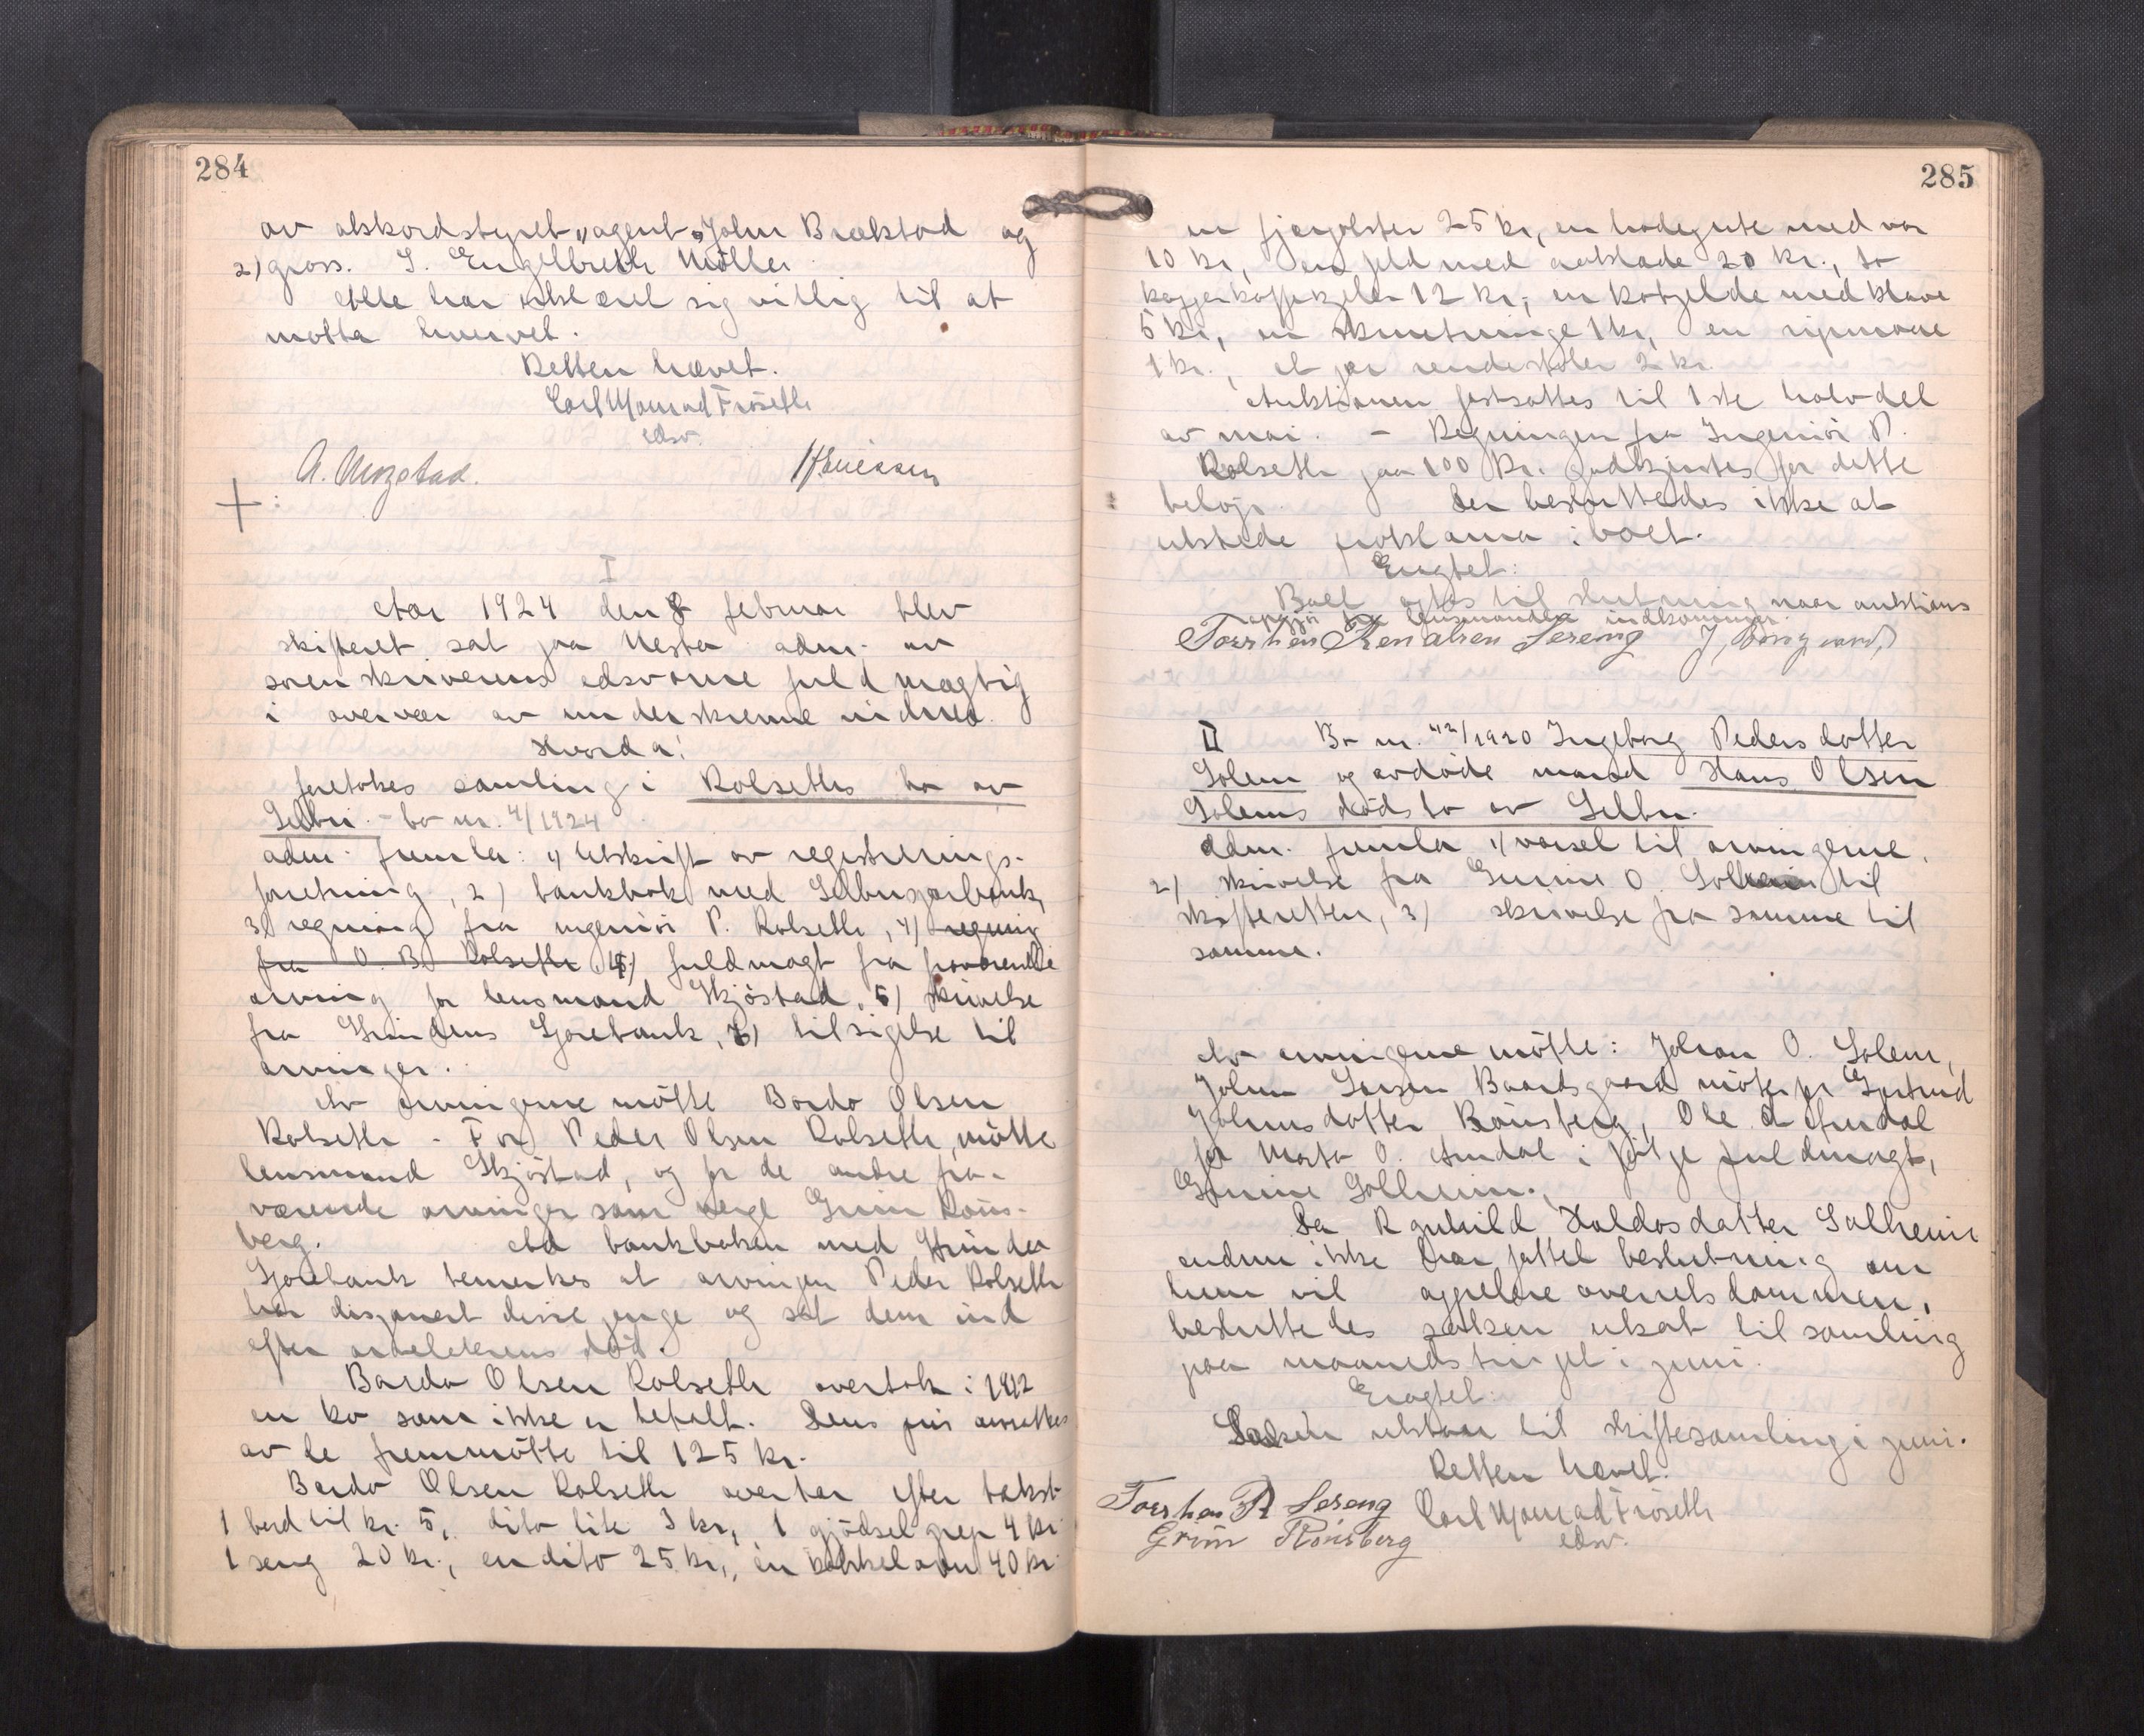 284
av akkordstyret, 1) agent John Brækstad og
2) gross. S. Engelbreth Möller.
Alle har erklæret sig villig til at
motta hvervet.
Retten hævet.
Carl Monrad Fröseth
edsv.
A. Mogstad. H Eriessen
I
Aar 1924 den 8 februar blev
skifteret sat paa Nesta adm. av
sorenskriverens edsvorne fuldmægtig
i overvær av underskrevne vidner.
Hvorda:
foretokes samling i Rolseths bo av
Selbu. - bo nr. 4/1924
adm. fremla: 1) Utskrift av registrerings-
forretning, 2) bankbok med Selbusparebank,
3) regning fra ingeniör P. Rolseth, 4) regning
fra O. B. Rolseth 4) fuldmagt fra fraværende
arving for lensmand Skjöstad, 5) skrivelse
fra Strindens Sparebank, 6) tilsigelse til
arvinger.
Av arvingerne mötte Bardo Olsen
Rolseth - For Peder Olsen Rolseth mötte
lensmand Skjöstad, og for de andre fra-
værende arvinger som verge Grim Röns-
berg. Ad bankboken med Strinden
Sparebank bemerkes at arvingen Peder Rolseth
har disponert disse penge og sat dem ind
efter arveladerens död.
Bardo Olsen Rolseth overtok i 1912
en ko som ikke er betalt. Dens pris ansættes
av de fremmötte til 125 kr.
Bardo Olsen Rolseth overtar efter takst
1 bord til kr. 5, dito lite 3 kr, 1 gjödselgrep 4 kr
1 seng 20 kr., en dito 25 kr., en kakkelovn 40 kr
285
en fjærpolster 25 kr, en hodepute med var
10 kr, en feld med 20 kr., to
kaffekjeler 12 kr, en med klave
5 kr, en 1 kr, en
1 kr., et par 2 kr.
Auktionen fastsattes til 1ste halvdel
av mai. - Regningen fra Ingeniör P.
Rolseth paa 100 kr. godkjentes for dette
belöp. Der besluttedes ikke at
utstede proklama i boet.
Eragtet:
Boet optas til slutning naar auktions
opgjör fra lensmanden indkommer.
Torsten Renaasen Sereng
II Bo nr. 42/1920 Ingeborg Pedersdatter
Solem og avdöde mand Hans Olsen
Solems dödsbo av Selbu.
Adm. fremla 1) varsel til arvingerne.
2) skrivelse fra Gunine O. Solheim til
skifteretten, 3) skrivelse fra samme til
samme.
Av arvingerne mötte: Johan O. Solem,
John Larsen Baardsgaard möter for Gjertrud
Johnsdatter Rönsberg, Ole A Amdal
for Marta O. Amdal i fölge fuldmagt,
Gunine Solheim.
Da Ragnhild Haldosdatter Solheim
endnu ikke har fattet beslutning om
hun vil appellere overretsdommen,
besluttedes saken utsat til samling
paa maanedstinget i juni.
Eragtet:
Saken utstaar til skiftesamling i juni.
Retten hævet.
Torsten R Sereng Carl Monrad Fröseth
Grim Rönsberg edsv.